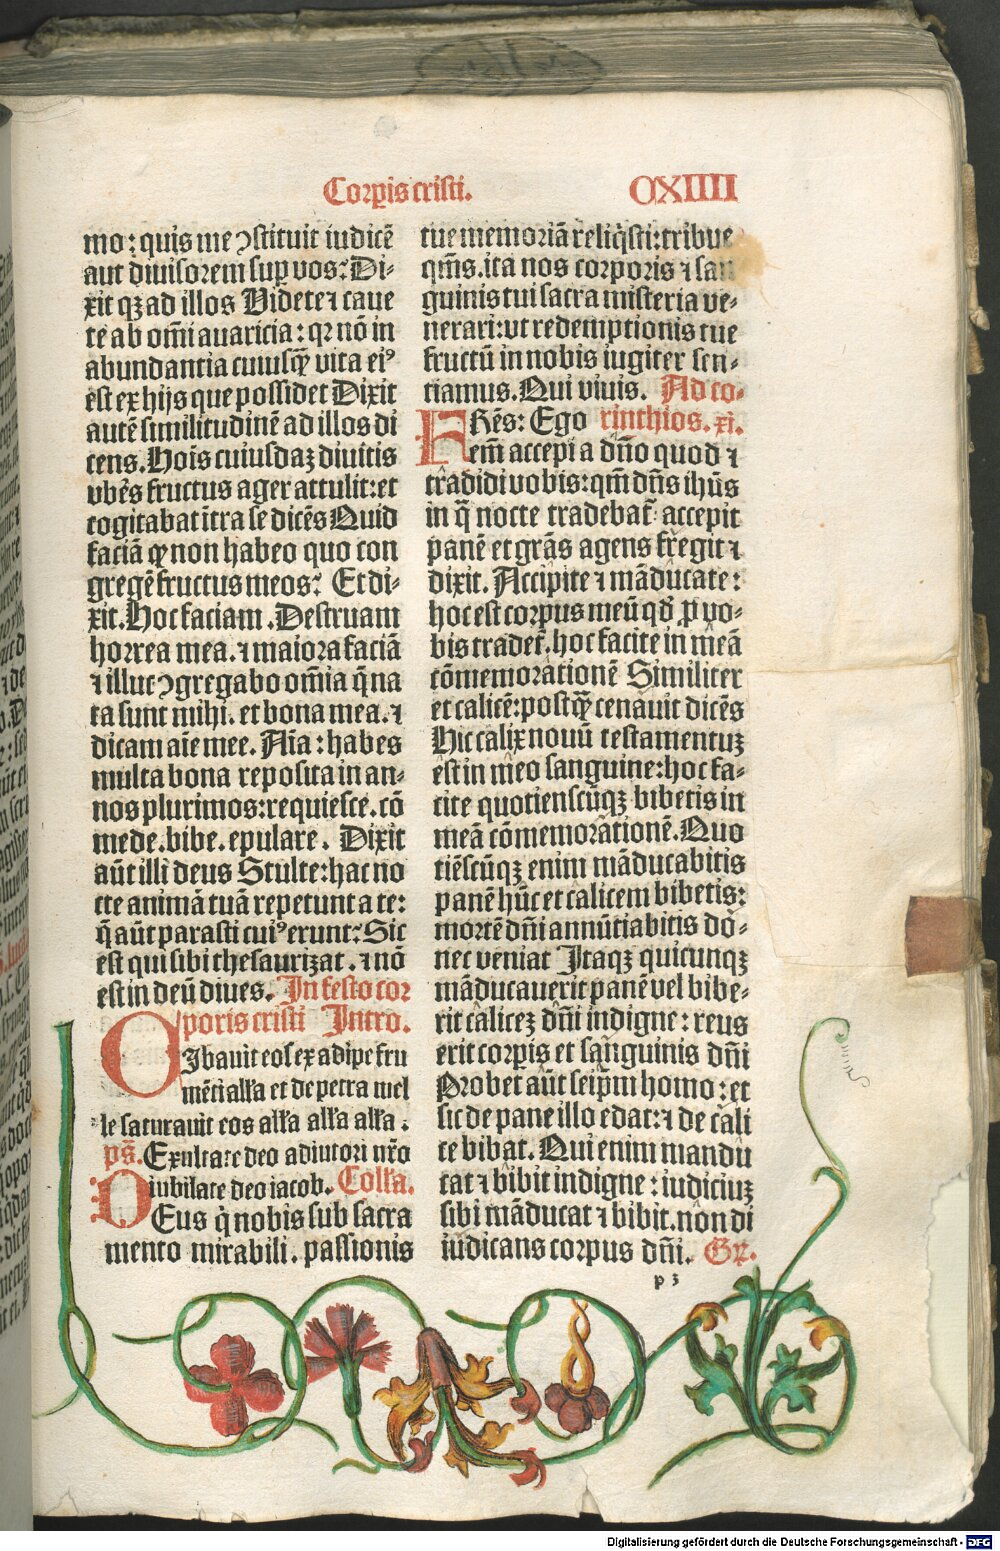 Corꝑis cristi.
CXIIII
mo: quis me ꝯstituit iudicē
aut diuisorem suꝑ vos: Di-
xit qꝫ ad illos Videte ⁊ caue
te ab om̄i auaricia: qꝛ nō in
abundantia cuiusꝙ̄ vita eiꝰ
est ex hijs que possidet Dixit
autē similitudinē ad illos di
cens. Hoīs cuiusdaꝫ diuitis
vbēs fructus ager attulit: et
cogitabat ītra se dicēs Quid
faciā ꝙ non habeo quo con
gregē fructus meos: Et di-
xit. Hoc faciam. Destruam
horrea mea. ⁊ maiora faciā
⁊ illuc ꝯgregabo om̄ia q̄ na
ta sunt mihi. et bona mea. ⁊
dicam aīe mee. Aīa: habes
multa bona reposita in an-
nos plurimos: requiesce. cō
mede. bibe. epulare. Dixit
aūt illi deus Stulte: hac no
cte animā tuā repetunt a te:
q̄ aūt parasti cuiꝰ erunt: Sic
est qui sibi thesaurizat. ⁊ nō
est in deū diues. In festo cor
poris cristi Intro.
CIbauit eos ex adipe fru
mēti alľa et de petra mel
le saturauit eos alľa alľa alľa.
ps̄. Exultate deo adiutori nr̄o
iubilate deo iacob. Collā.
DEus q̇ nobis sub sacra
mento mirabili. passionis
tue memoriā reliq̇sti: tribue
qm̄s. ita nos corporis ⁊ san
guinis tui sacra misteria ve-
nerari: vt redemptionis tue
fructū in nobis iugiter sen-
tiamus. Qui viuis. Ad co-
FRēs: Ego rinthios. xi.
em̄ accepi a dn̄o quod ⁊
tradidi vobis: qm̄ dn̄s ihūs
in q̄ nocte tradebat̄ accepit
panē et grās agens fregit ⁊
dixit. Accipite ⁊ māducate:
hoc est corpus meū qd̄ ꝓ vo-
bis tradet̄. hoc facite in meā
cōmemorationē Similiter
et calicē: postꝙ̄ cenauit dicēs
Hic calix nouū testamentuꝫ
est in meo sanguine: hoc fa-
cite quotienscūqꝫ bibetis in
meā cōmemorationē. Quo
tiēscūqꝫ enim māducabitis
panē hūc et calicem bibetis:
mortē dn̄i annūtiabitis do-
nec veniat Itaqꝫ quicunqꝫ
māducauerit panē vel bibe-
rit caliceꝫ dn̄i indigne: reus
erit corꝑis et sanguinis dn̄i
Probet aūt seip̄m homo: et
sic de pane illo edat: ⁊ de cali
ce bibat. Qui enim mandu
cat ⁊ bibit indigne: iudiciuꝫ
sibi māducat ⁊ bibit. non di
iudicans corpus dn̄i. Gꝛ.
p 3
Digitalisierung gefördert durch die Deutsche Forschungsgemeinschaft - DFG